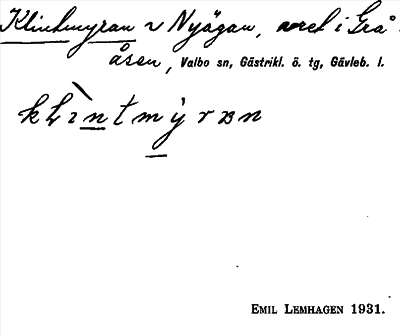 Klintmyran v Nyägan, avel i Grå-
åsen, Valbo sn, Gästrikl. ö. tg, Gävleb. l.
klìntmy̆ran
EMIL LEMHAGEN 1931.